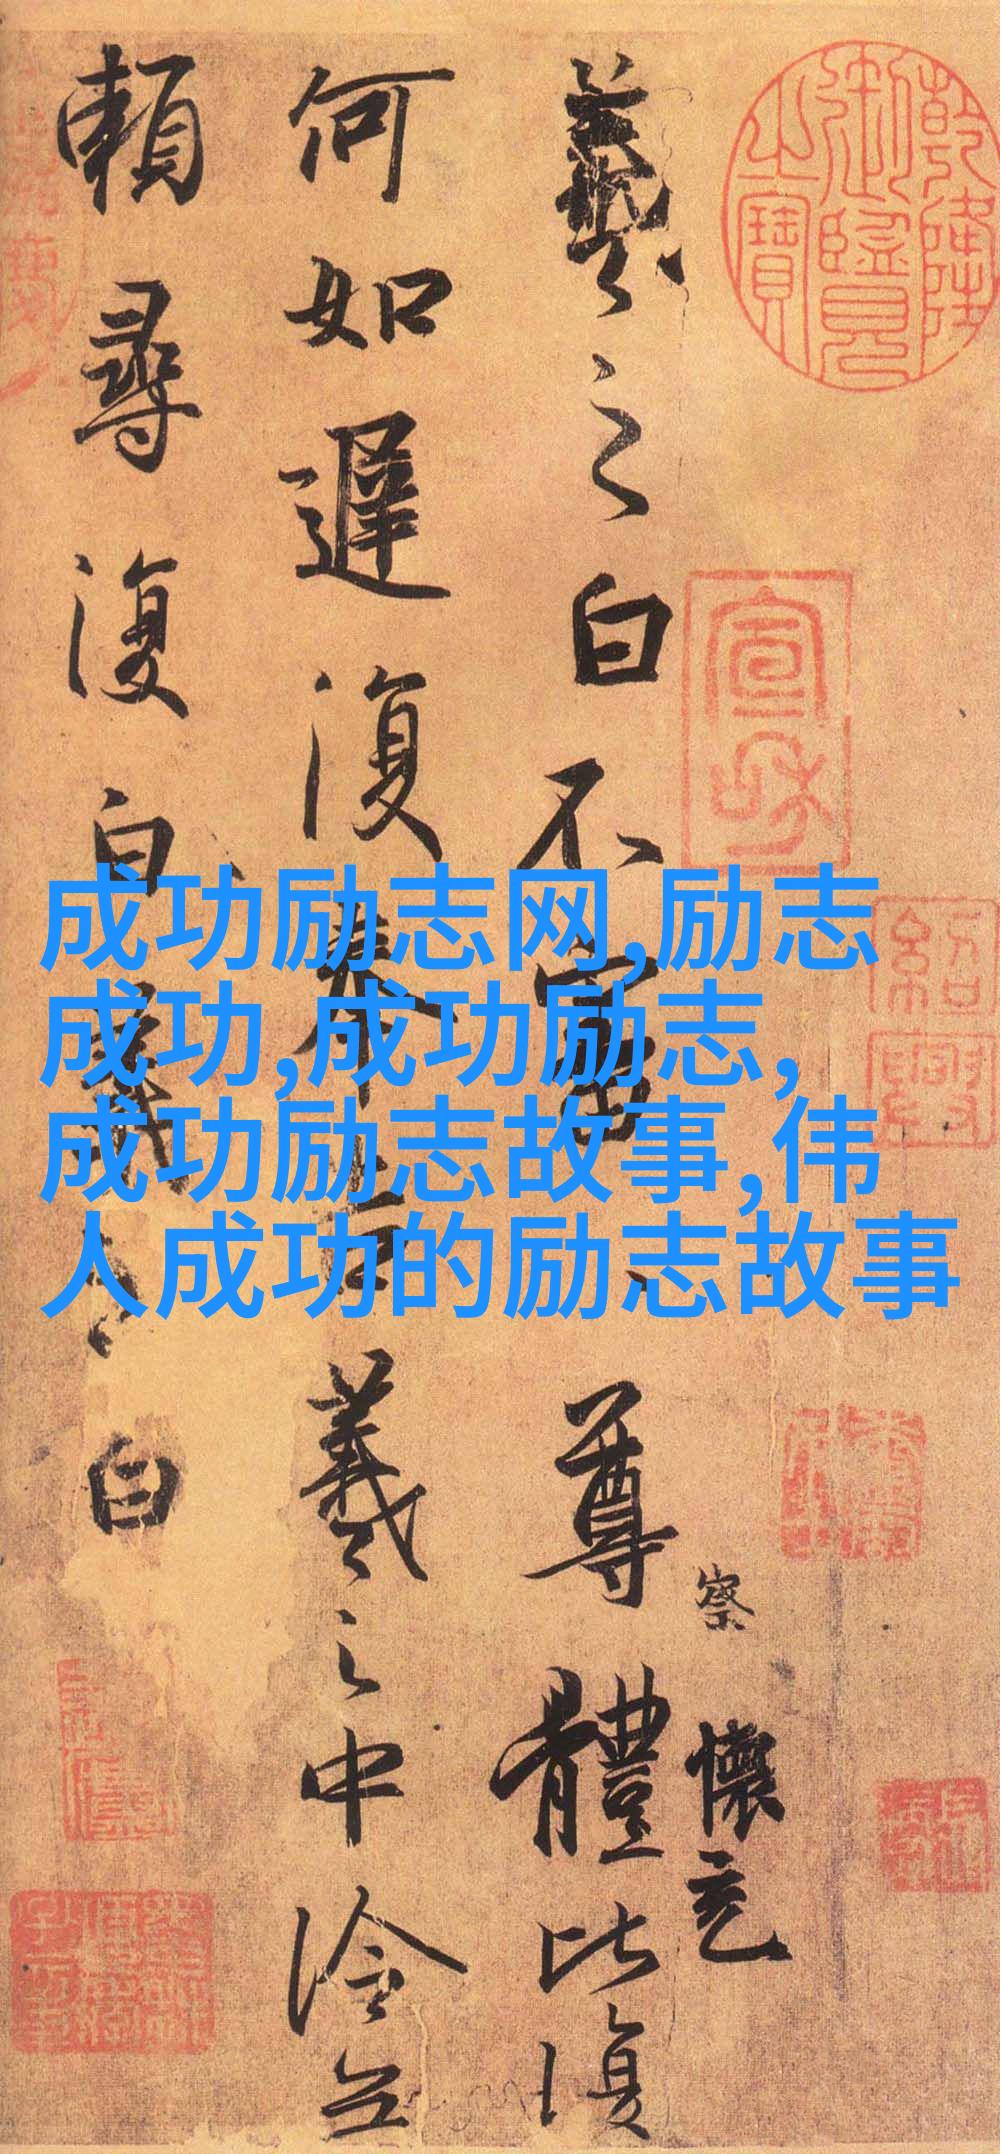 乾隆御覽之寶
宣和
紹興
察
懷充
羲之白不審尊體比復
何如遲復奉告羲之中冷無
賴尋復白羲之白
成功励志网,励志
成功,成功励志,
成功励志故事,伟
人成功的励志故事